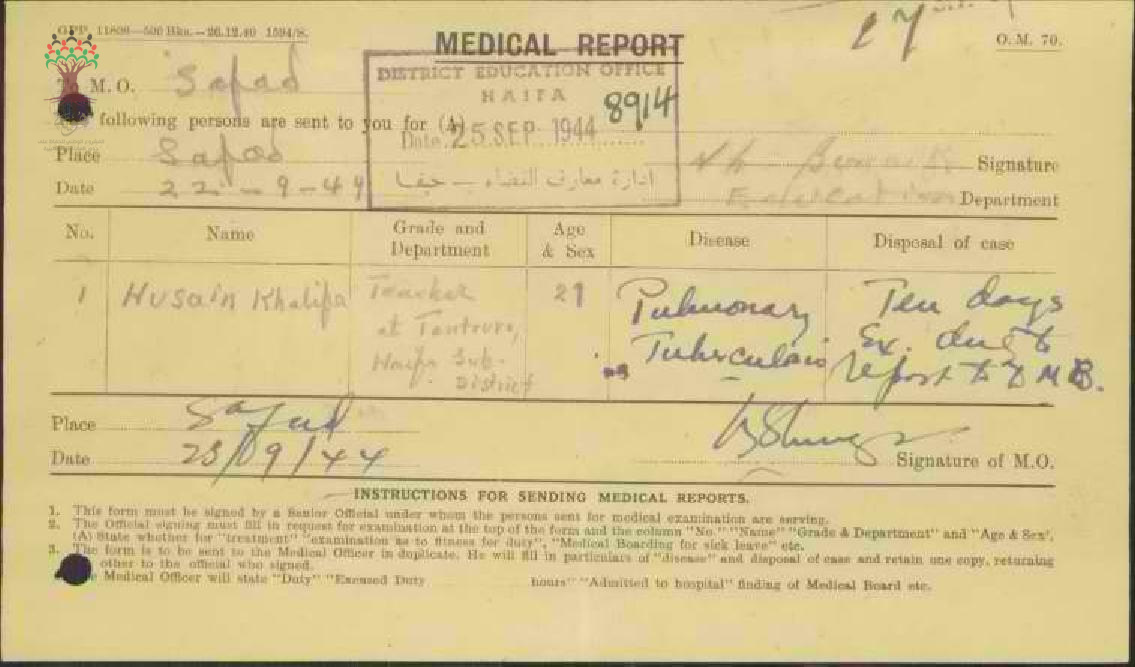 GPP. 11808—500 Bks.—26.12.40 1594/S.
17
MEDICAL REPORT
O.M. 70.
To M.O. Safad
DISTRICT EDUCATION OFFICE
HAIFA
8914
following persons are sent to you for (A)
Date 25 SEP 1944
Place Safad
Signature
ادارة معارف القضاء — حيفا
Date 22-9-44
Education Department
No. Name Grade and Department Age & Sex Disease Disposal of case
1 Husain Khalifa Teacher at Tantura, Haifa Sub-District 21 Pulmonary Tuberculosis Ten days Ex. duty report to M.B.
Place Safad
Date 23/09/44
Signature of M.O.
INSTRUCTIONS FOR SENDING MEDICAL REPORTS.
1. This form must be signed by a Senior Official under whom the persons sent for medical examination are serving.
2. The Official signing must fill in request for examination at the top of the form and the column "No." "Name" "Grade & Department" and "Age & Sex".
(A) State whether for "treatment" "examination as to fitness for duty", "Medical Boarding for sick leave" etc.
3. The form is to be sent to the Medical Officer in duplicate. He will fill in particulars of "disease" and disposal of case and retain one copy, returning
other to the official who signed.
Medical Officer will state "Duty" "Excused Duty hours" "Admitted to hospital" finding of Medical Board etc.